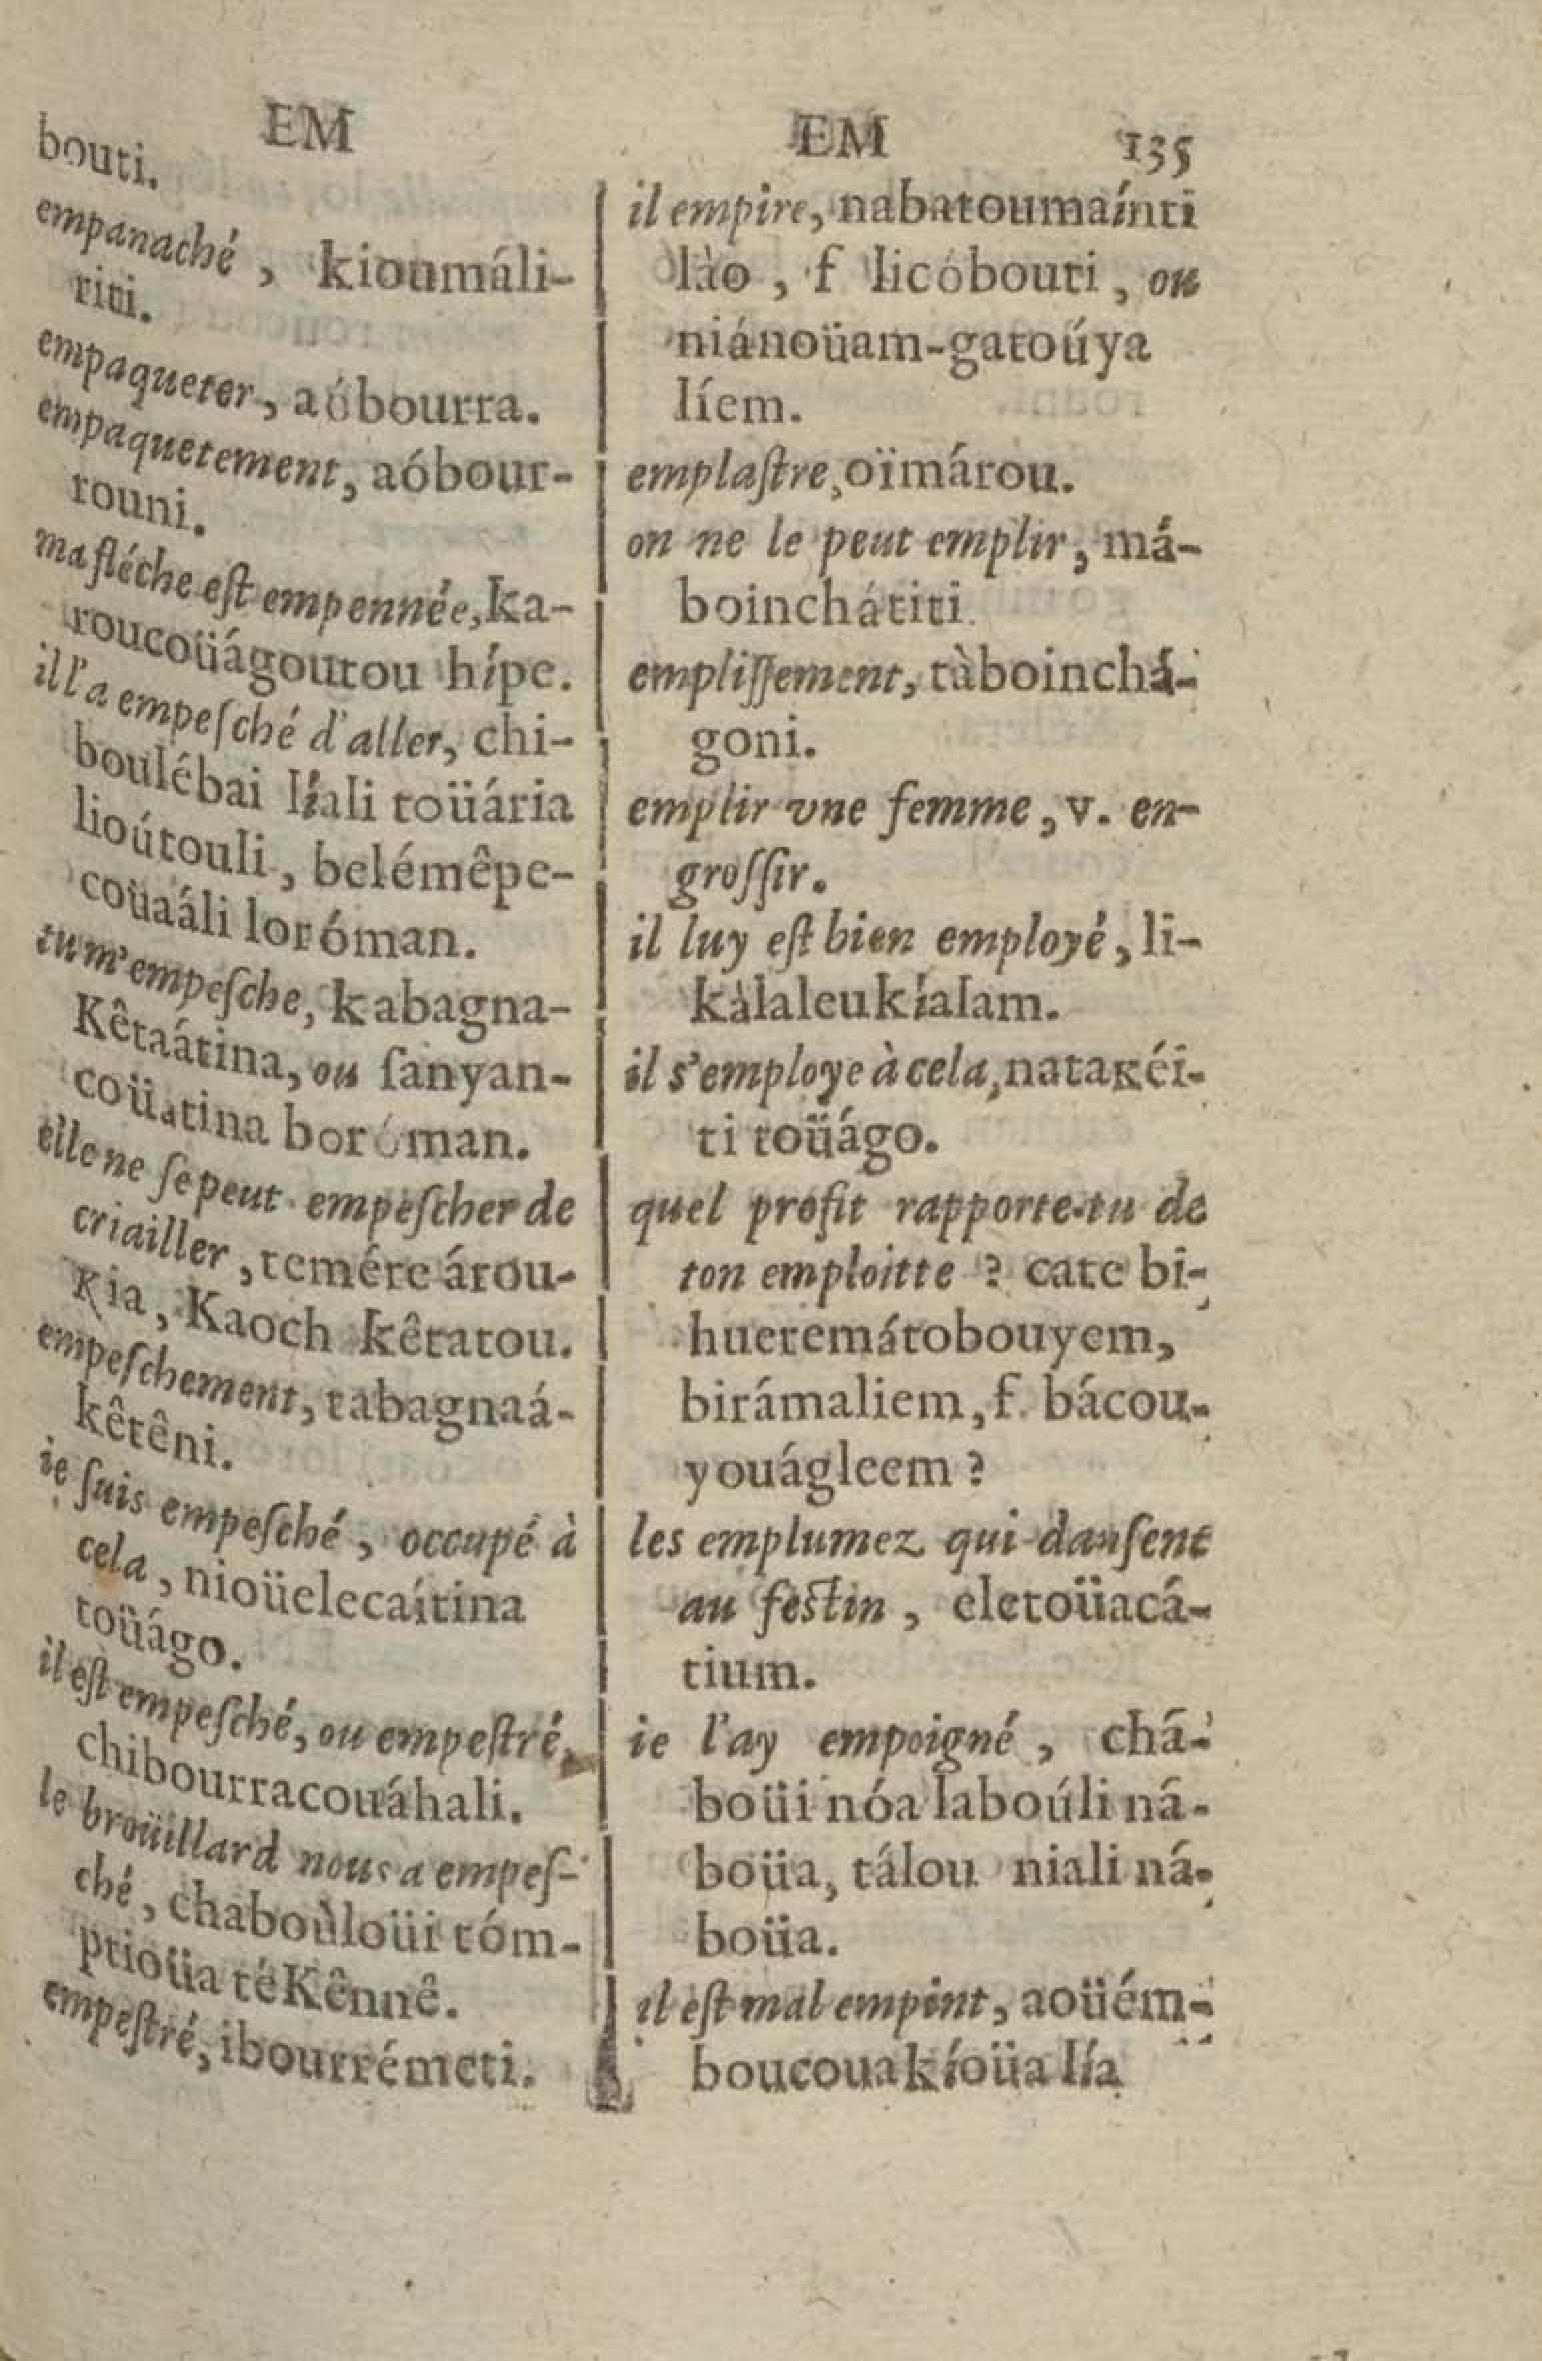 EM
bouti.
empanaché, kioumáli-
titi.
empaqueter, aóbourra.
empaquetement, aóbour-
rouni.
ma fléche est empennée, ka-
roucoüágoutou hípe.
il l'a empeſché d'aller, chi-
boulébai líali toüária
lioútouli, belémêpe-
coüaáli loróman.
tu m'empeſche, kabagna-
Kêtaátina, ou ſanyan-
coüatina boróman.
elle ne ſe peut empeſcher de
criailler, temére árou-
Kia, Kaoch kêtatou.
empeſchement, tabagnaá-
kêtêni.
ie ſuis empeſché, occupé à
cela, nioüelecaítina
toüágo.
il eſt empeſché, ou empeſtré,
chibourracouáhali.
le broüillard nous a empeſ-
ché, chaboùloüi tóm-
ptioüa téKênnê.
empeſtré, ibourrémeti.
EM 135
il empire, nabatoumaínti
lào, f licóbouti, ou
niánoüam-gatoúya
líem.
emplaſtre, oïmárou.
on ne le peut emplir, má-
boinchátiti.
empliſſement, tàboinchá-
goni.
emplir vne femme, v. en-
groſſir.
il luy eſt bien employé, li-
kàlaleukíalam.
il s'employe à cela, nataKéi-
ti toüágo.
quel profit rapporte-tu de
ton emploitte ? cate bi-
hueremátobouyem,
birámaliem, f. bácou-
youágleem ?
les emplumez qui danſent
au feſtin, eletoüacá-
tium.
ie l'ay empoigné, chá-
boüi nóa laboúli ná-
boüa, tálou niali ná-
boüa.
il eſt mal empint, aoüém-
boucouakíoüa lía